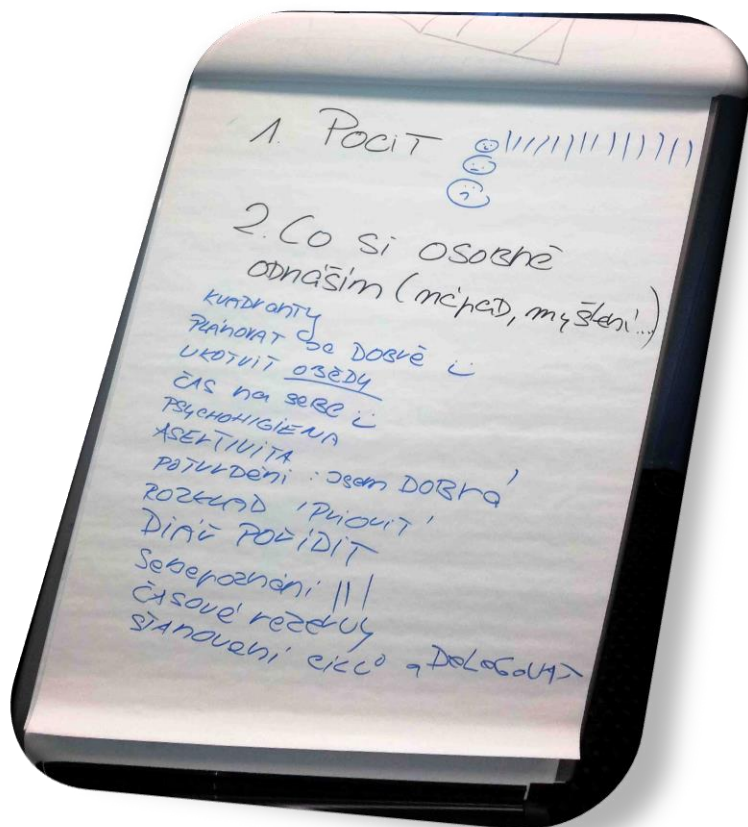 1. POCIT
2. CO SI OSOBNĚ
ODNÁŠÍM (NÁPAD, MYŠLENÍ...)
KVADRANTY
PLÁNOVAT DE DOBŘE
UKOTVIT OBĚDY
ČAS NA SEBE
PSYCHOHIGIENA
ASERTIVITA
POTVRDENÍ: JSEM DOBRÁ
ROZKLAD PRIORIT
DIÁŘ POŘÍDIT
SEBEPOZNÁNÍ !!!
ČASOVÉ REZERVY
STANOVENÍ CÍLŮ, DELEGOVAT